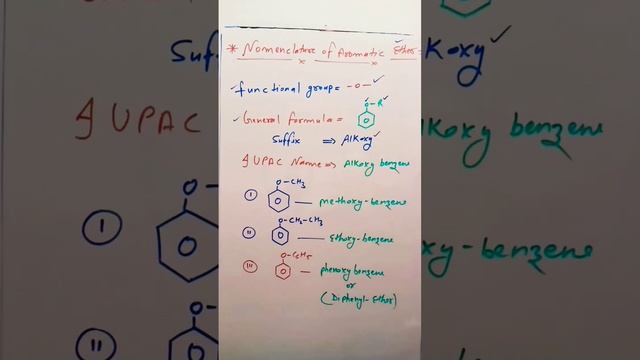 * Nomenclature of Aromatic Ether
Functional group = -O-
O-R
General formula =
Suffix ⇒ Alkoxy
IUPAC Name ⇒ Alkoxy benzene
O-CH3
I methoxy-benzene
O-CH2-CH3
II Ethoxy-benzene
O-C6H5
III phenoxy benzene
or
(Diphenyl-Ether)
Suffix
Alkoxy
IUPAC
Alkoxy benzene
I
O-
xy-benzene
II
O-